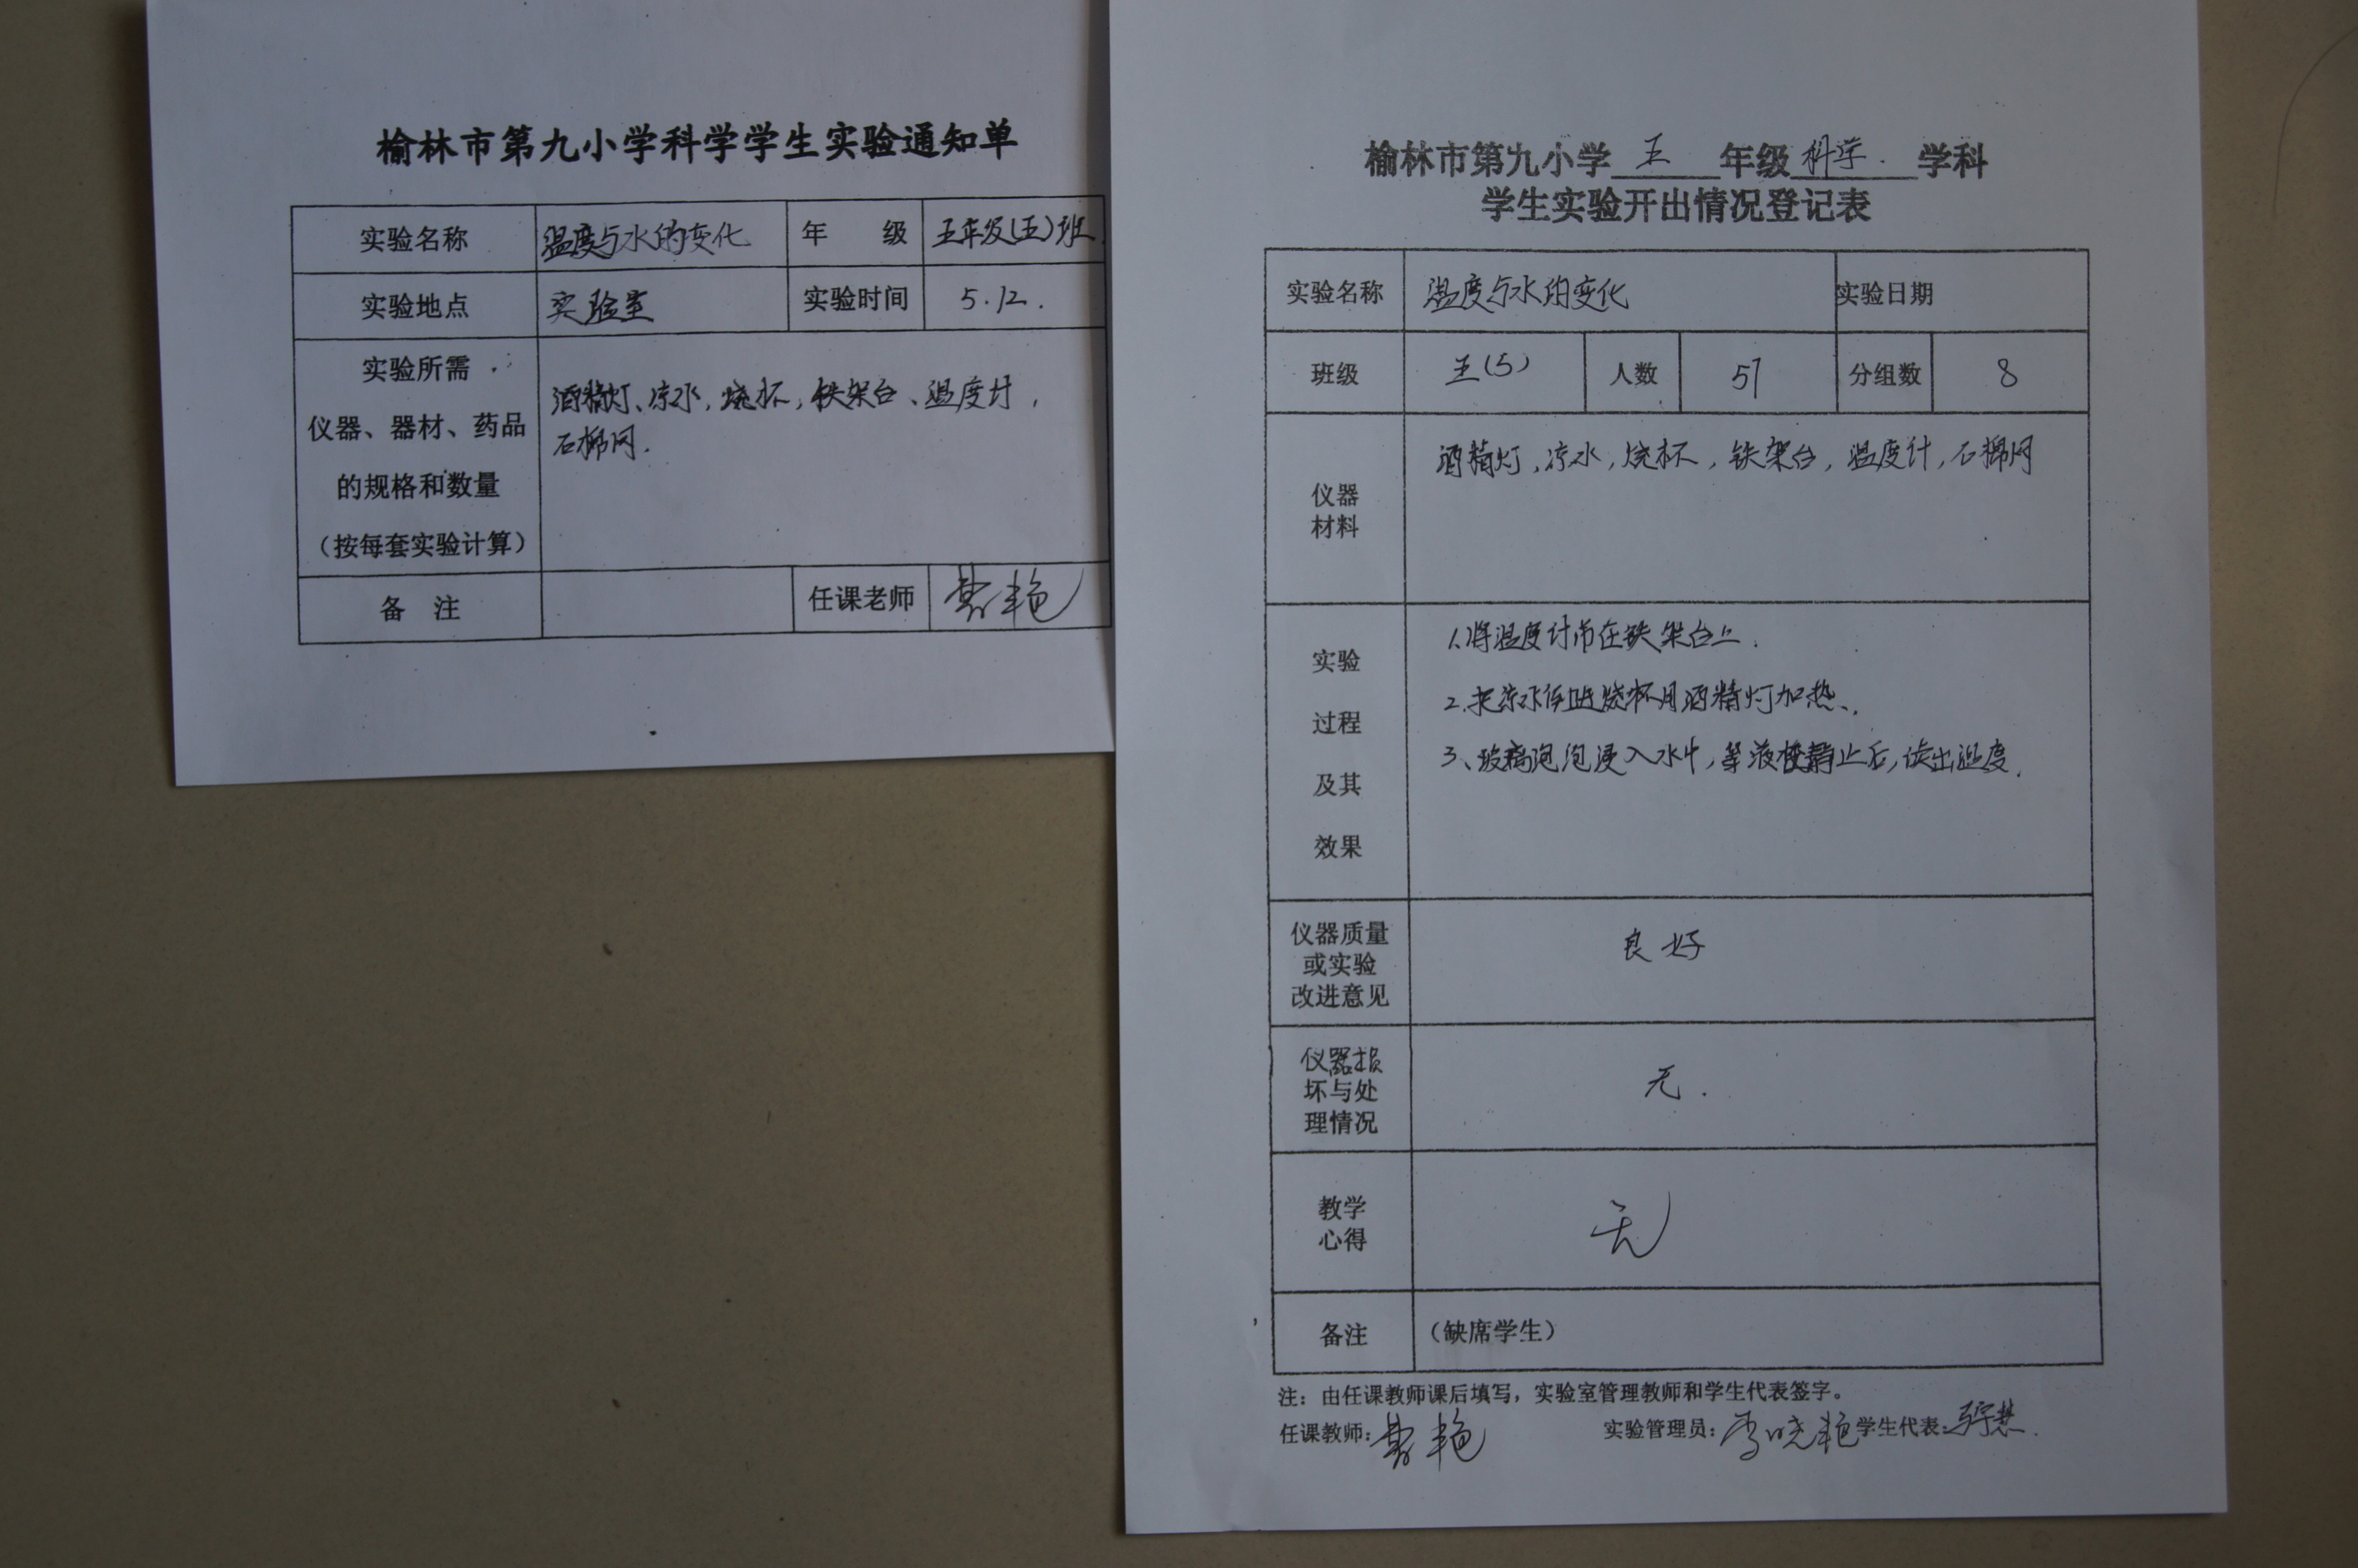 榆林市第九小学科学学生实验通知单
实验名称 温度与水的变化 年 级 五年级(五)班
实验地点 实验室 实验时间 5.12.
实验所需
仪器、器材、药品
的规格和数量
(按每套实验计算)
酒精灯、凉水,烧杯,铁架台、温度计,
石棉网.
备 注 任课老师
榆林市第九小学 五 年级 科学. 学科
学生实验开出情况登记表
实验名称 温度与水的变化 实验日期
班级 五(5) 人数 51 分组数 8
仪器
材料
酒精灯,凉水,烧杯,铁架台,温度计,石棉网
实验
过程
及其
效果
1.将温度计吊在铁架台上.
2.把凉水 进烧杯用酒精灯加热、.
3、玻璃泡泡浸入水中,等液柱静止后,读出温度.
仪器质量
或实验
改进意见
良好
仪器损
坏与处
理情况
无.
教学
心得
无
备注 (缺席学生)
注:由任课教师课后填写,实验室管理教师和学生代表签字。
任课教师: 实验管理员:李晓艳 学生代表: